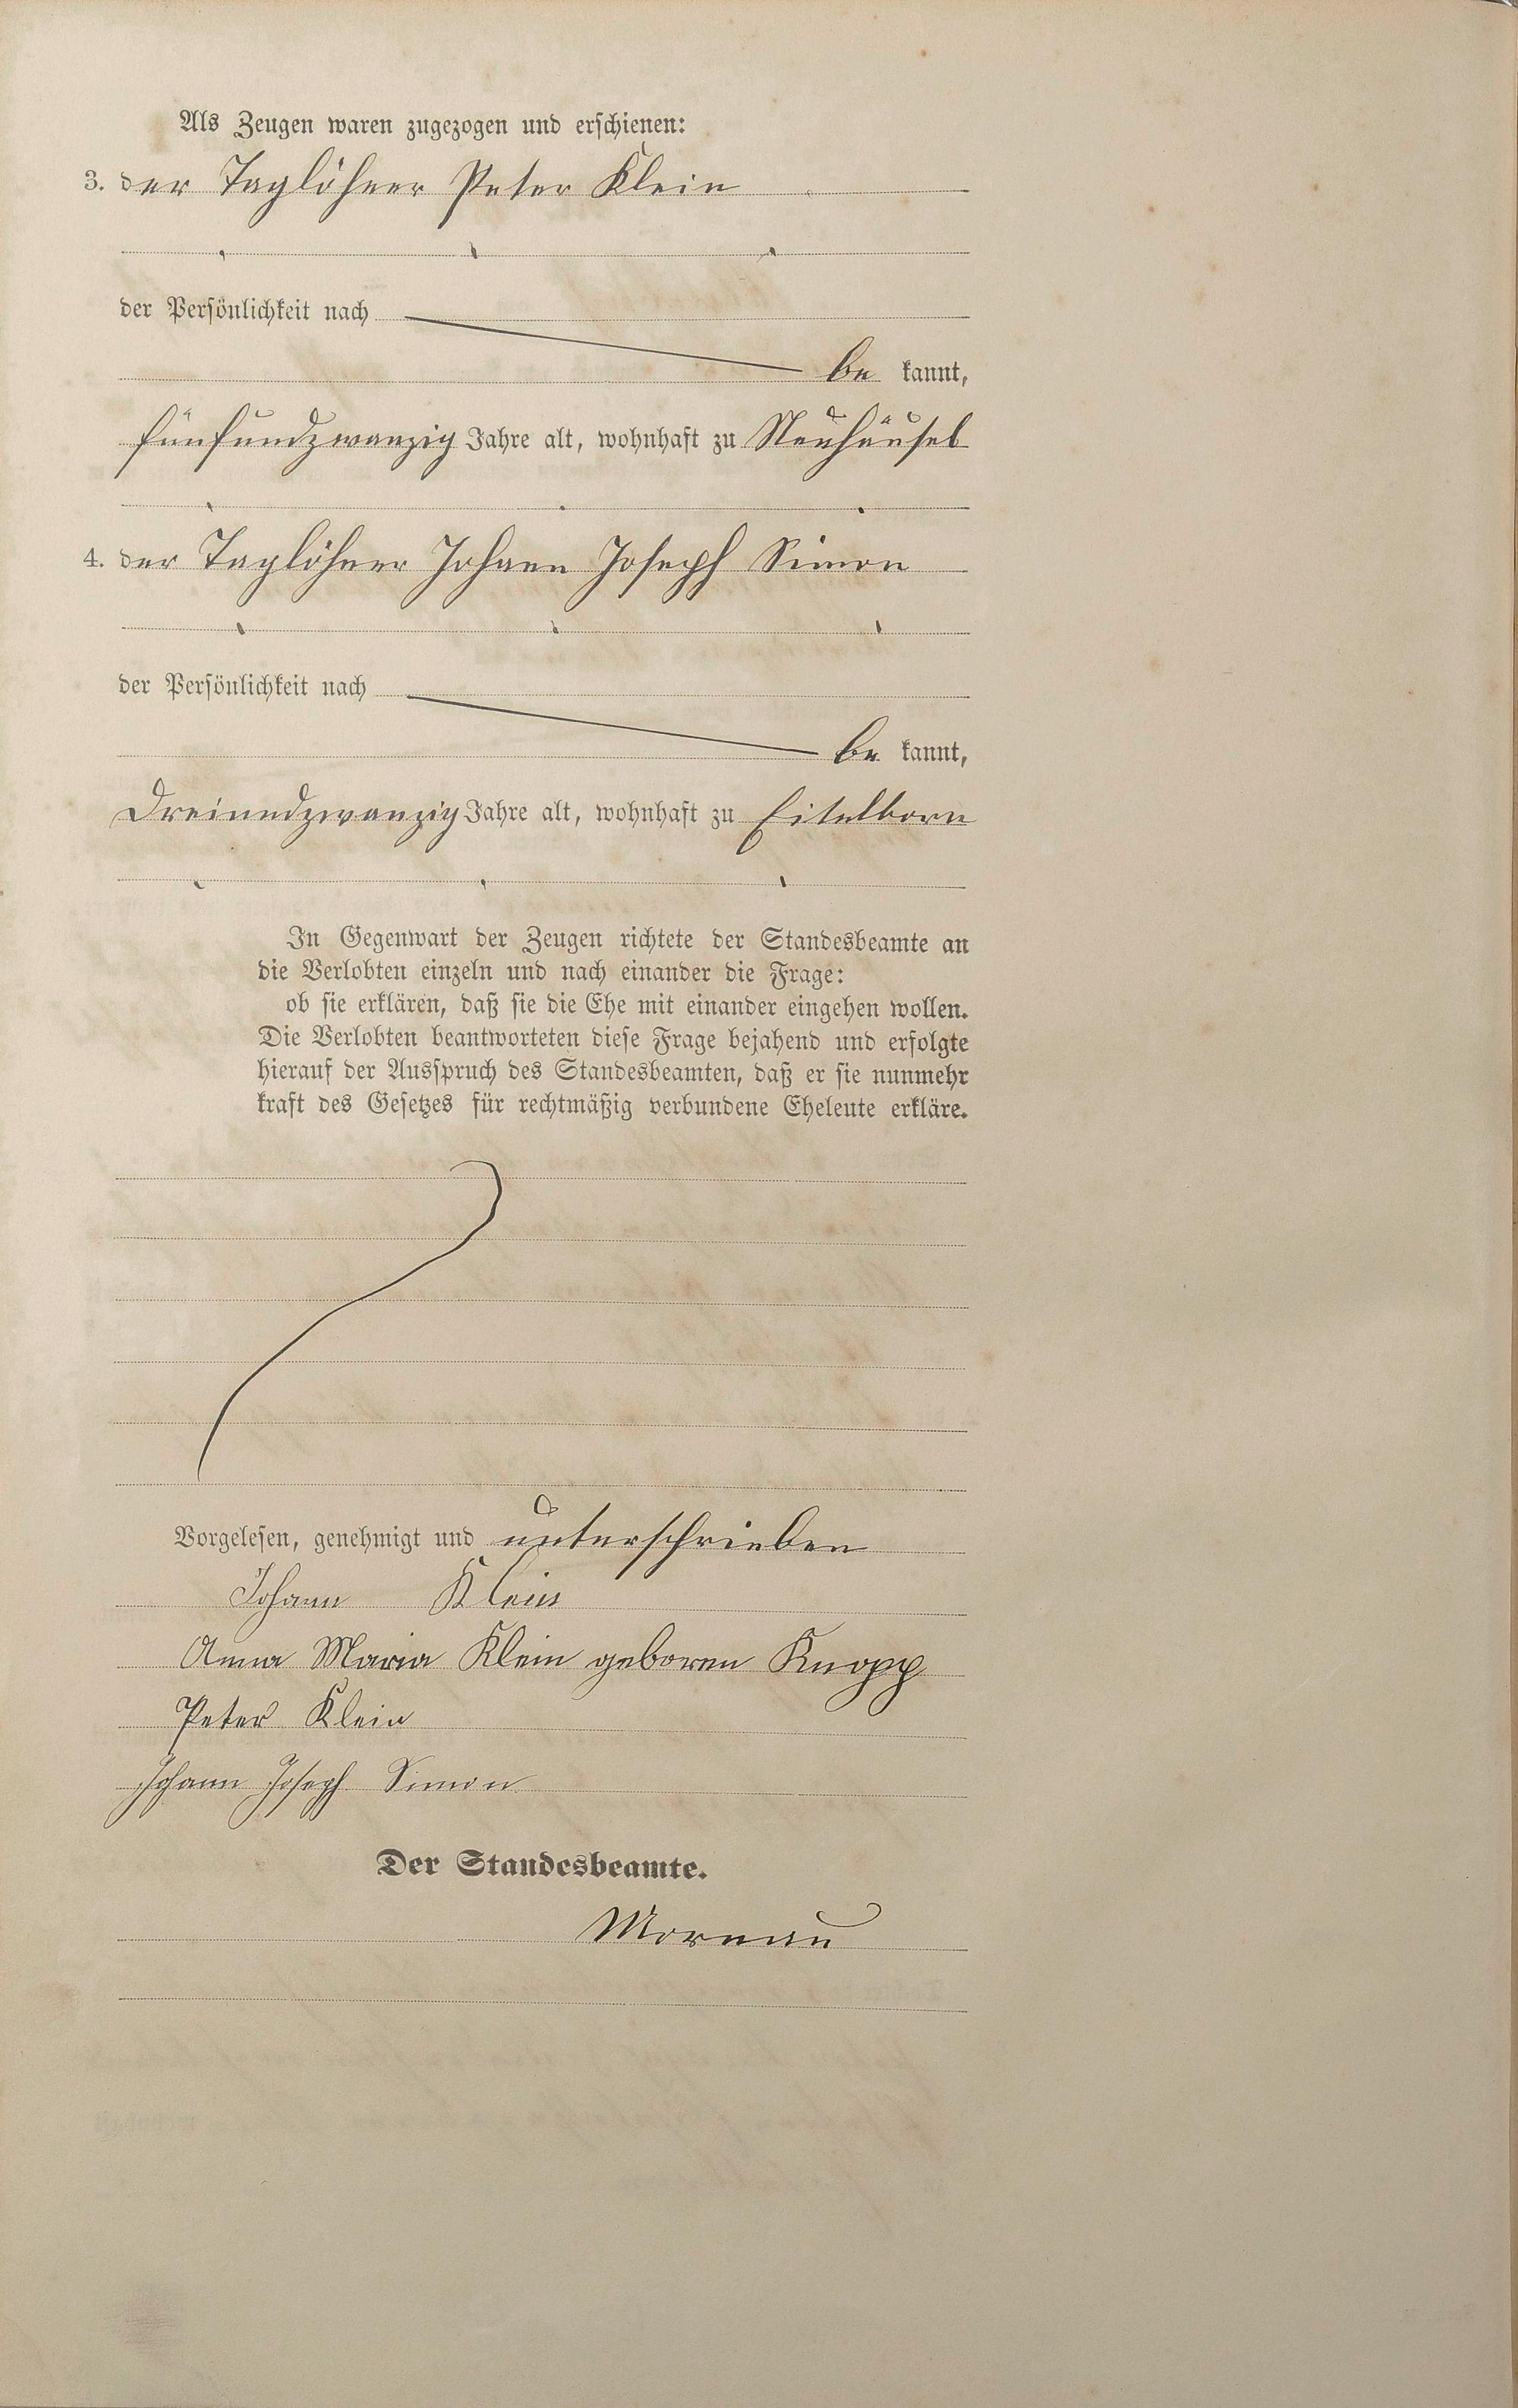 Als Zeugen waren zugezogen und erschienen:
3. der Taglöhner Peter Klein
der Persönlichkeit nach
be kannt,
fünfundzwanzig Jahre alt, wohnhaft zu Neuhäusel
4. der Taglöhner Johann Joseph Simon
der Persönlichkeit nach
be kannt,
dreiundzwanzig Jahre alt, wohnhaft zu Eitelborn
In Gegenwart der Zeugen richtete der Standesbeamte an
die Verlobten einzeln und nach einander die Frage:
ob sie erklären, daß sie die Ehe mit einander eingehen wollen.
Die Verlobten beantworteten diese Frage bejahend und erfolgte
hierauf der Ausspruch des Standesbeamten, daß er sie nunmehr
kraft des Gesetzes für rechtmäßig verbundene Eheleute erkläre.
Vorgelesen, genehmigt und unterschrieben
Johann Klein
Anna Maria Klein geboren Knopp
Peter Klein
Johann Joseph Simon
Der Standesbeamte.